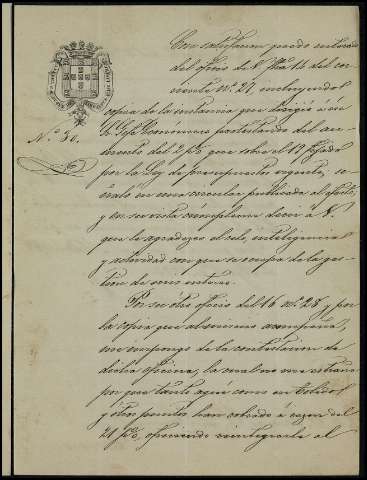 Con satisfacion quedo enterado
del oficio de V. fha 14 del cor-
riente nº 27, incluyendo
copia de la instancia que dirigió á ese
Sr Gefe Economico protestando del au-
mento del 2 p% que sobre el 19 fijado
por la Ley de presupuestos vigente, se-
ñaló en una circular publicada al efecto,
y en su vista cumpleme decir á V.
que le agradezco el celo, inteligencia
y actividad con que se ocupa de la ges-
tion de mis intereses.
Nº 30.
Por su otro oficio del 16 nº 28 y por
la copia que al mismo acompaña,
me impongo de la contestacion de
dicha oficina, la cual no me estraña
por que tanto aquí como en Toledo
y otros puntos han cobrado á razon del
21 p%, ofreciendo reintegrarle el